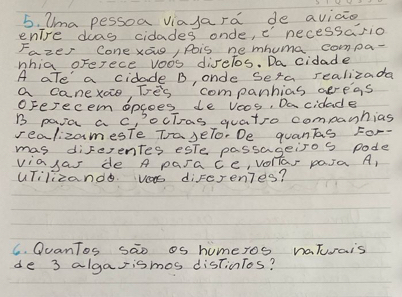 5. Uma pessoa viajará de avião
entre duas cidades onde, é necessário
Fazer conexão, pois nenhuma compa-
nhia oferece voos diretos. Da cidade
A até a cidade B, onde será realizada
a conexão, Três companhias aéreas
oferecem opções de voos. Da cidade
B para a C, outras quatro companhias
realizam este Trajeto. De quantas For-
mas diferentes este passageiros pode
viajar de A para C e, voltar para A,
utilizando voos diferentes?
6. Quantos são os números naturais
de 3 algarismos distintos?